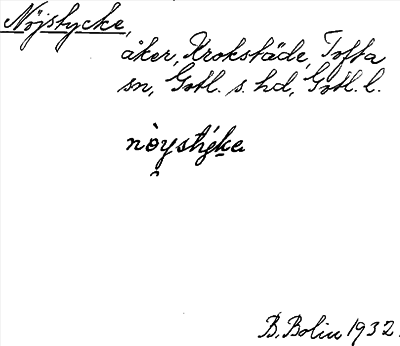 Nöjstycke,
åker, Krokstäde, Tofta
sn, Gotl. s. hd, Gotl. l.
nòystýke
B. Bolin 1932.